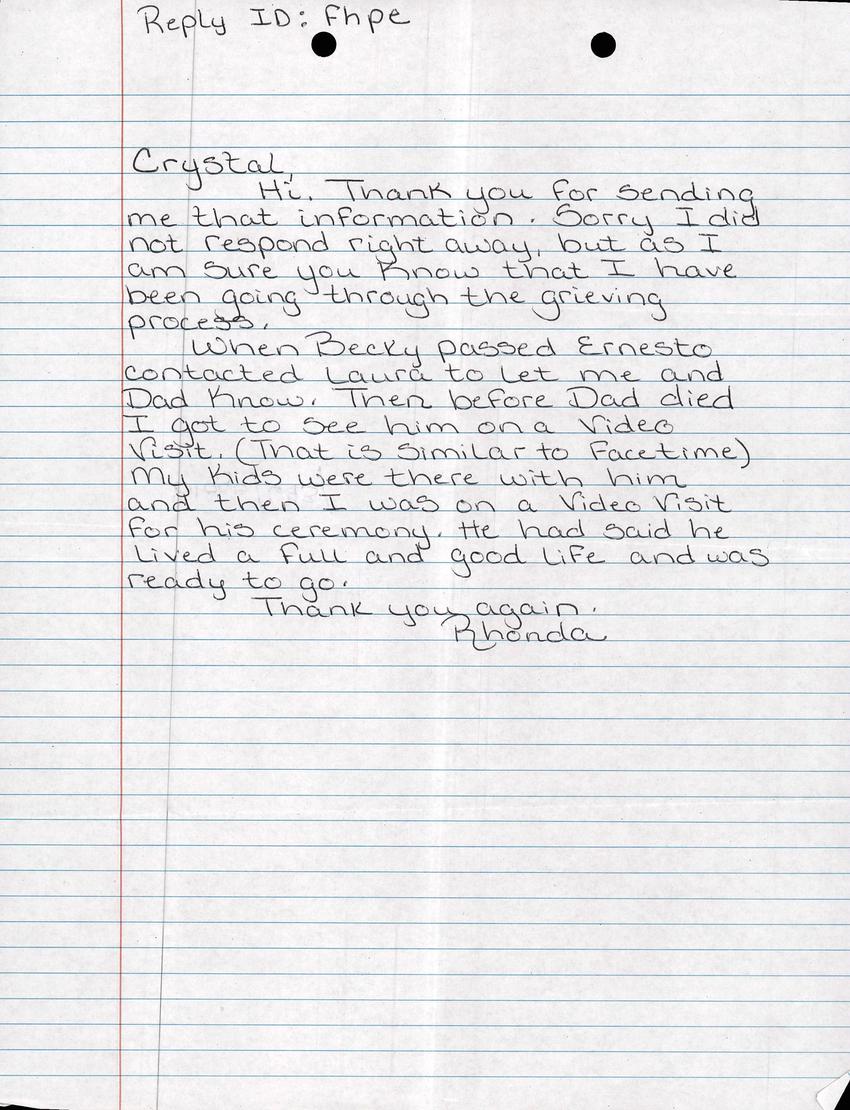 Reply ID: fhpe
Crystal,
Hi. Thank you for sending
me that information. Sorry I did
not respond right away, but as I
am sure you know that I have
been going through the grieving
process.
When Becky passed Ernesto
contacted Laura to let me and
Dad know. Then before Dad died
I got to see him on a Video
Visit. (That is similar to Facetime)
My kids were there with him
and then I was on a Video Visit
for his ceremony. He had said he
lived a full and good life and was
ready to go.
Thank you again.
Rhonda